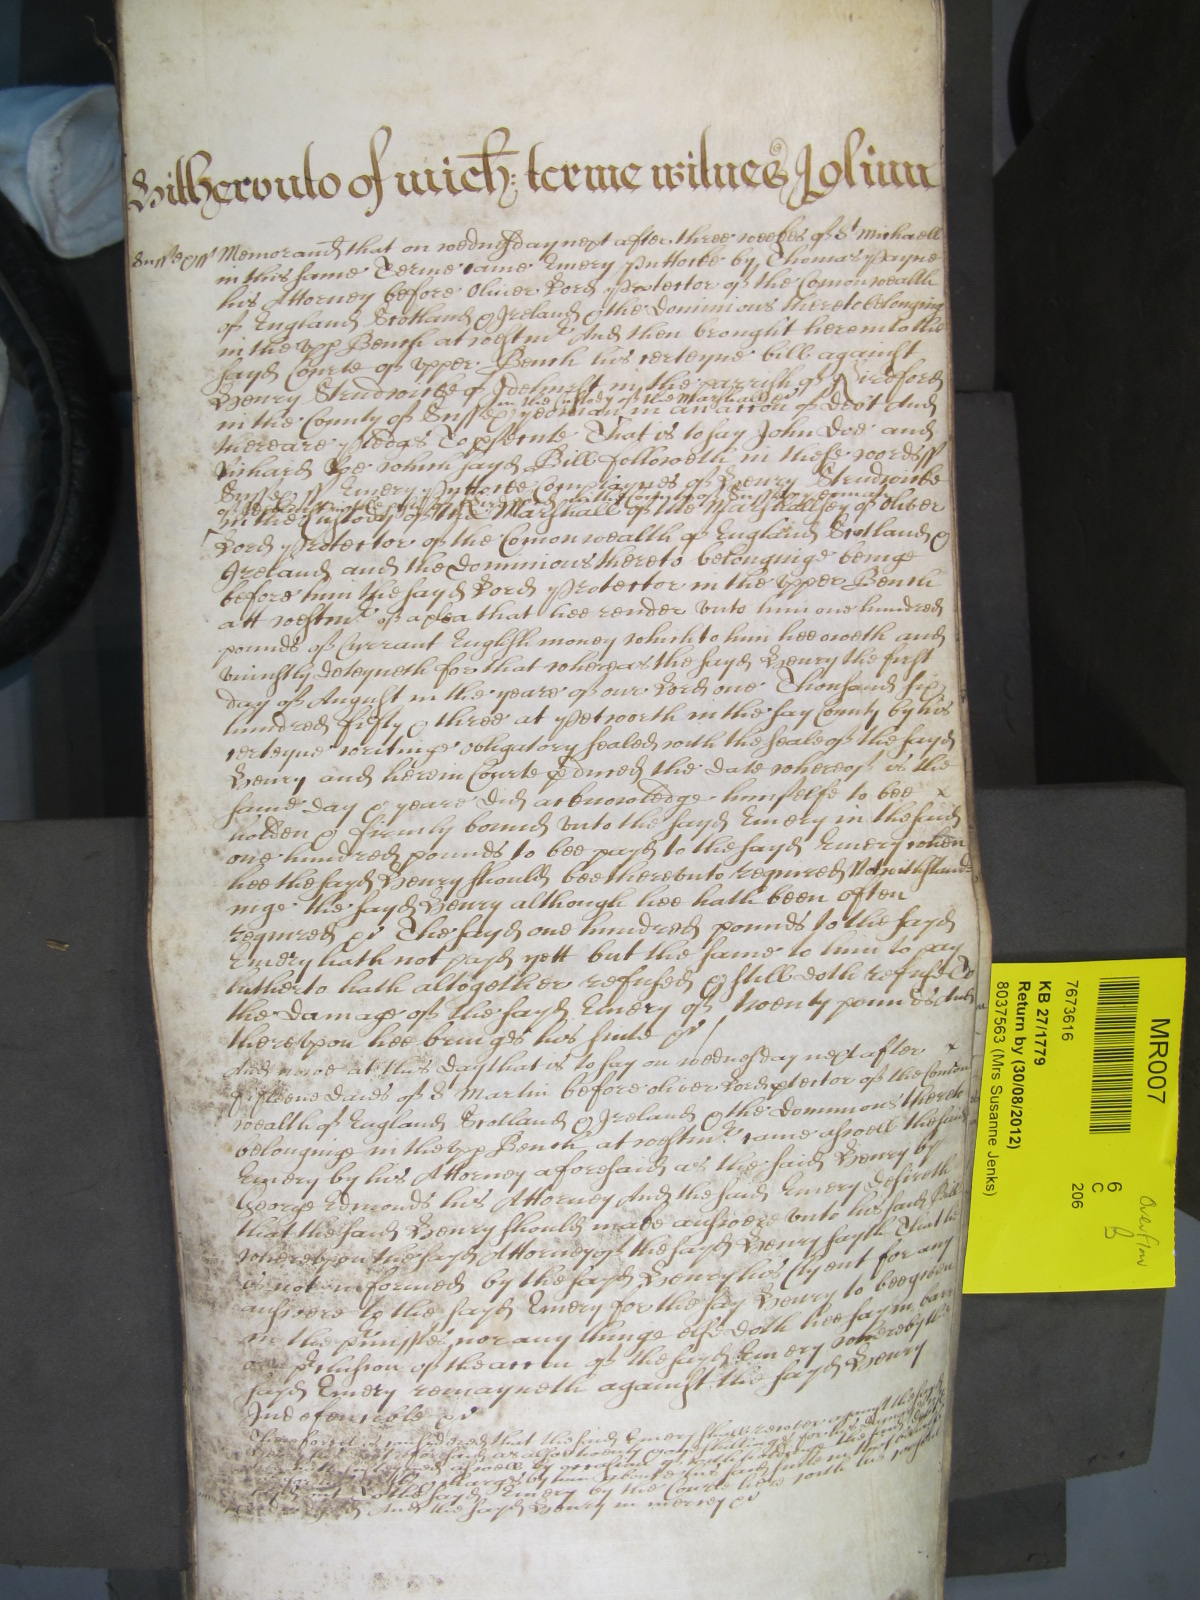 Hitherunto of Mich: terme witnes Rolium
Sussex ss Memorand that on wednesday next after three weekes of St Michaell
in this same Terme came Emery by Thomas Payne
his Attorney before Oliver Lord Protector of the Comonwealth
of England Scotland & Ireland & the Dominions thereto belonging
in the upp Bench at westmr And then brought here into the
sayd Courte of upper Bench his certeyne bill against
Henry Strudwicke of Idehurst in the parrish of Kirdford
in the Custody of the Marshall &c
in the County of Sussex yeoman in an accon of debt And
there are pledgs To psecute That is to say John Doe and
Richard Roe which sayd Bill followeth in these words ss
Sussex ss Emery Complaynes of Henry Strudwicke
of Idehurst in the parish of Kirdford in the County of Sussex yeoman
in the Custody of the Marshall of the Marshallsey of Oliver
Lord Protector of the Comonwealth of England Scotland &
Ireland and the Dominions thereto belonginge beinge
before him the sayd Lord Protector in the upper Bench
att westmr of a plea that hee render unto him one hundred
pounds of Currant English money which to him hee oweth and
uniustly deteyneth for that whereas the sayd Henry the first
day of August in the yeare of our Lord one Thousand six
hundred fifty & three at Petworth in the say County by his
certeyne writinge obligatory sealed with the seale of the sayd
Henry and here in Courte pduced the date whereof is the
same day & yeare did acknowledge himselfe to bee x
holden & firmly bound unto the sayd Emery in the said
one hundred pounds to bee payd to the sayd Emery when
hee the sayd Henry should bee thereunto required Notwithstand
inge the sayd Henry although hee hath been often
required &c The sayd one hundred pounds to the sayd
Emery hath not payd yett but the same to him to pay
hitherto hath altogether refused & still doth refuse To
the damage of the sayd Emery of twenty pounds And
thereupon hee brings his suite &c
And nowe at this day that is to say on wednesday next after x
fifteene daies of St Martin before Oliver Lord ptector of the Comon
wealth of England Scotland & Ireland & the Dominions thereto
belonginge in the upp Bench at westmr came aswell the said
Emery by his Attorney aforesaid as the said Henry by
George Edmonds his Attorney And the said Emery desireth
that the said Henry should make answere unto his said Bill
whereupon the sayd Attorney of the sayd Henry sayth That he
is not informed by the sayd Henry his Clyent for any
answere to the sayd Emery for the say Henry to bee given
in the pmisses nor any thinge else doth hee say in barr
or pclusion of the accon of the sayd Emery whereby the
sayd Emery remayneth against the sayd Henry
Indefensible &c
Therefore it is considered that the said Emery should recover against the sayd
Henry his debt aforesaid as also twenty shillings for his damages
which hee hath susteyned aswell by occasion of detininge the said debt
as for his charges by him about his said suite in that behalfe
to the sayd Emery by the Courte here with his assent
And the sayd Henry in mercy &c
MR007
7673616
6
C
206
KB 27/1779
Return by (30/08/2012)
8037563 (Mrs Susanne Jenks)
Overflow
B